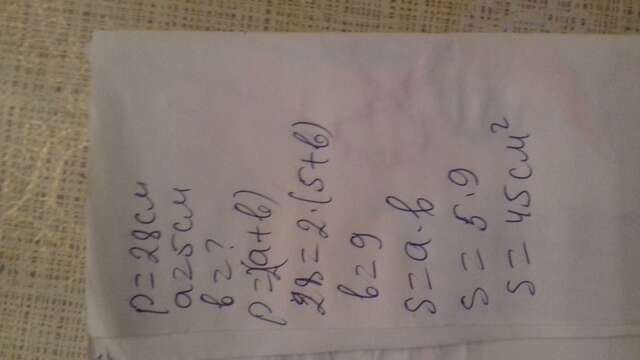 P=28см
a=5см
в=?
P=2(a+в)
28=2·(5+в)
в=9
S=a·в
S=5·9
S=45см²